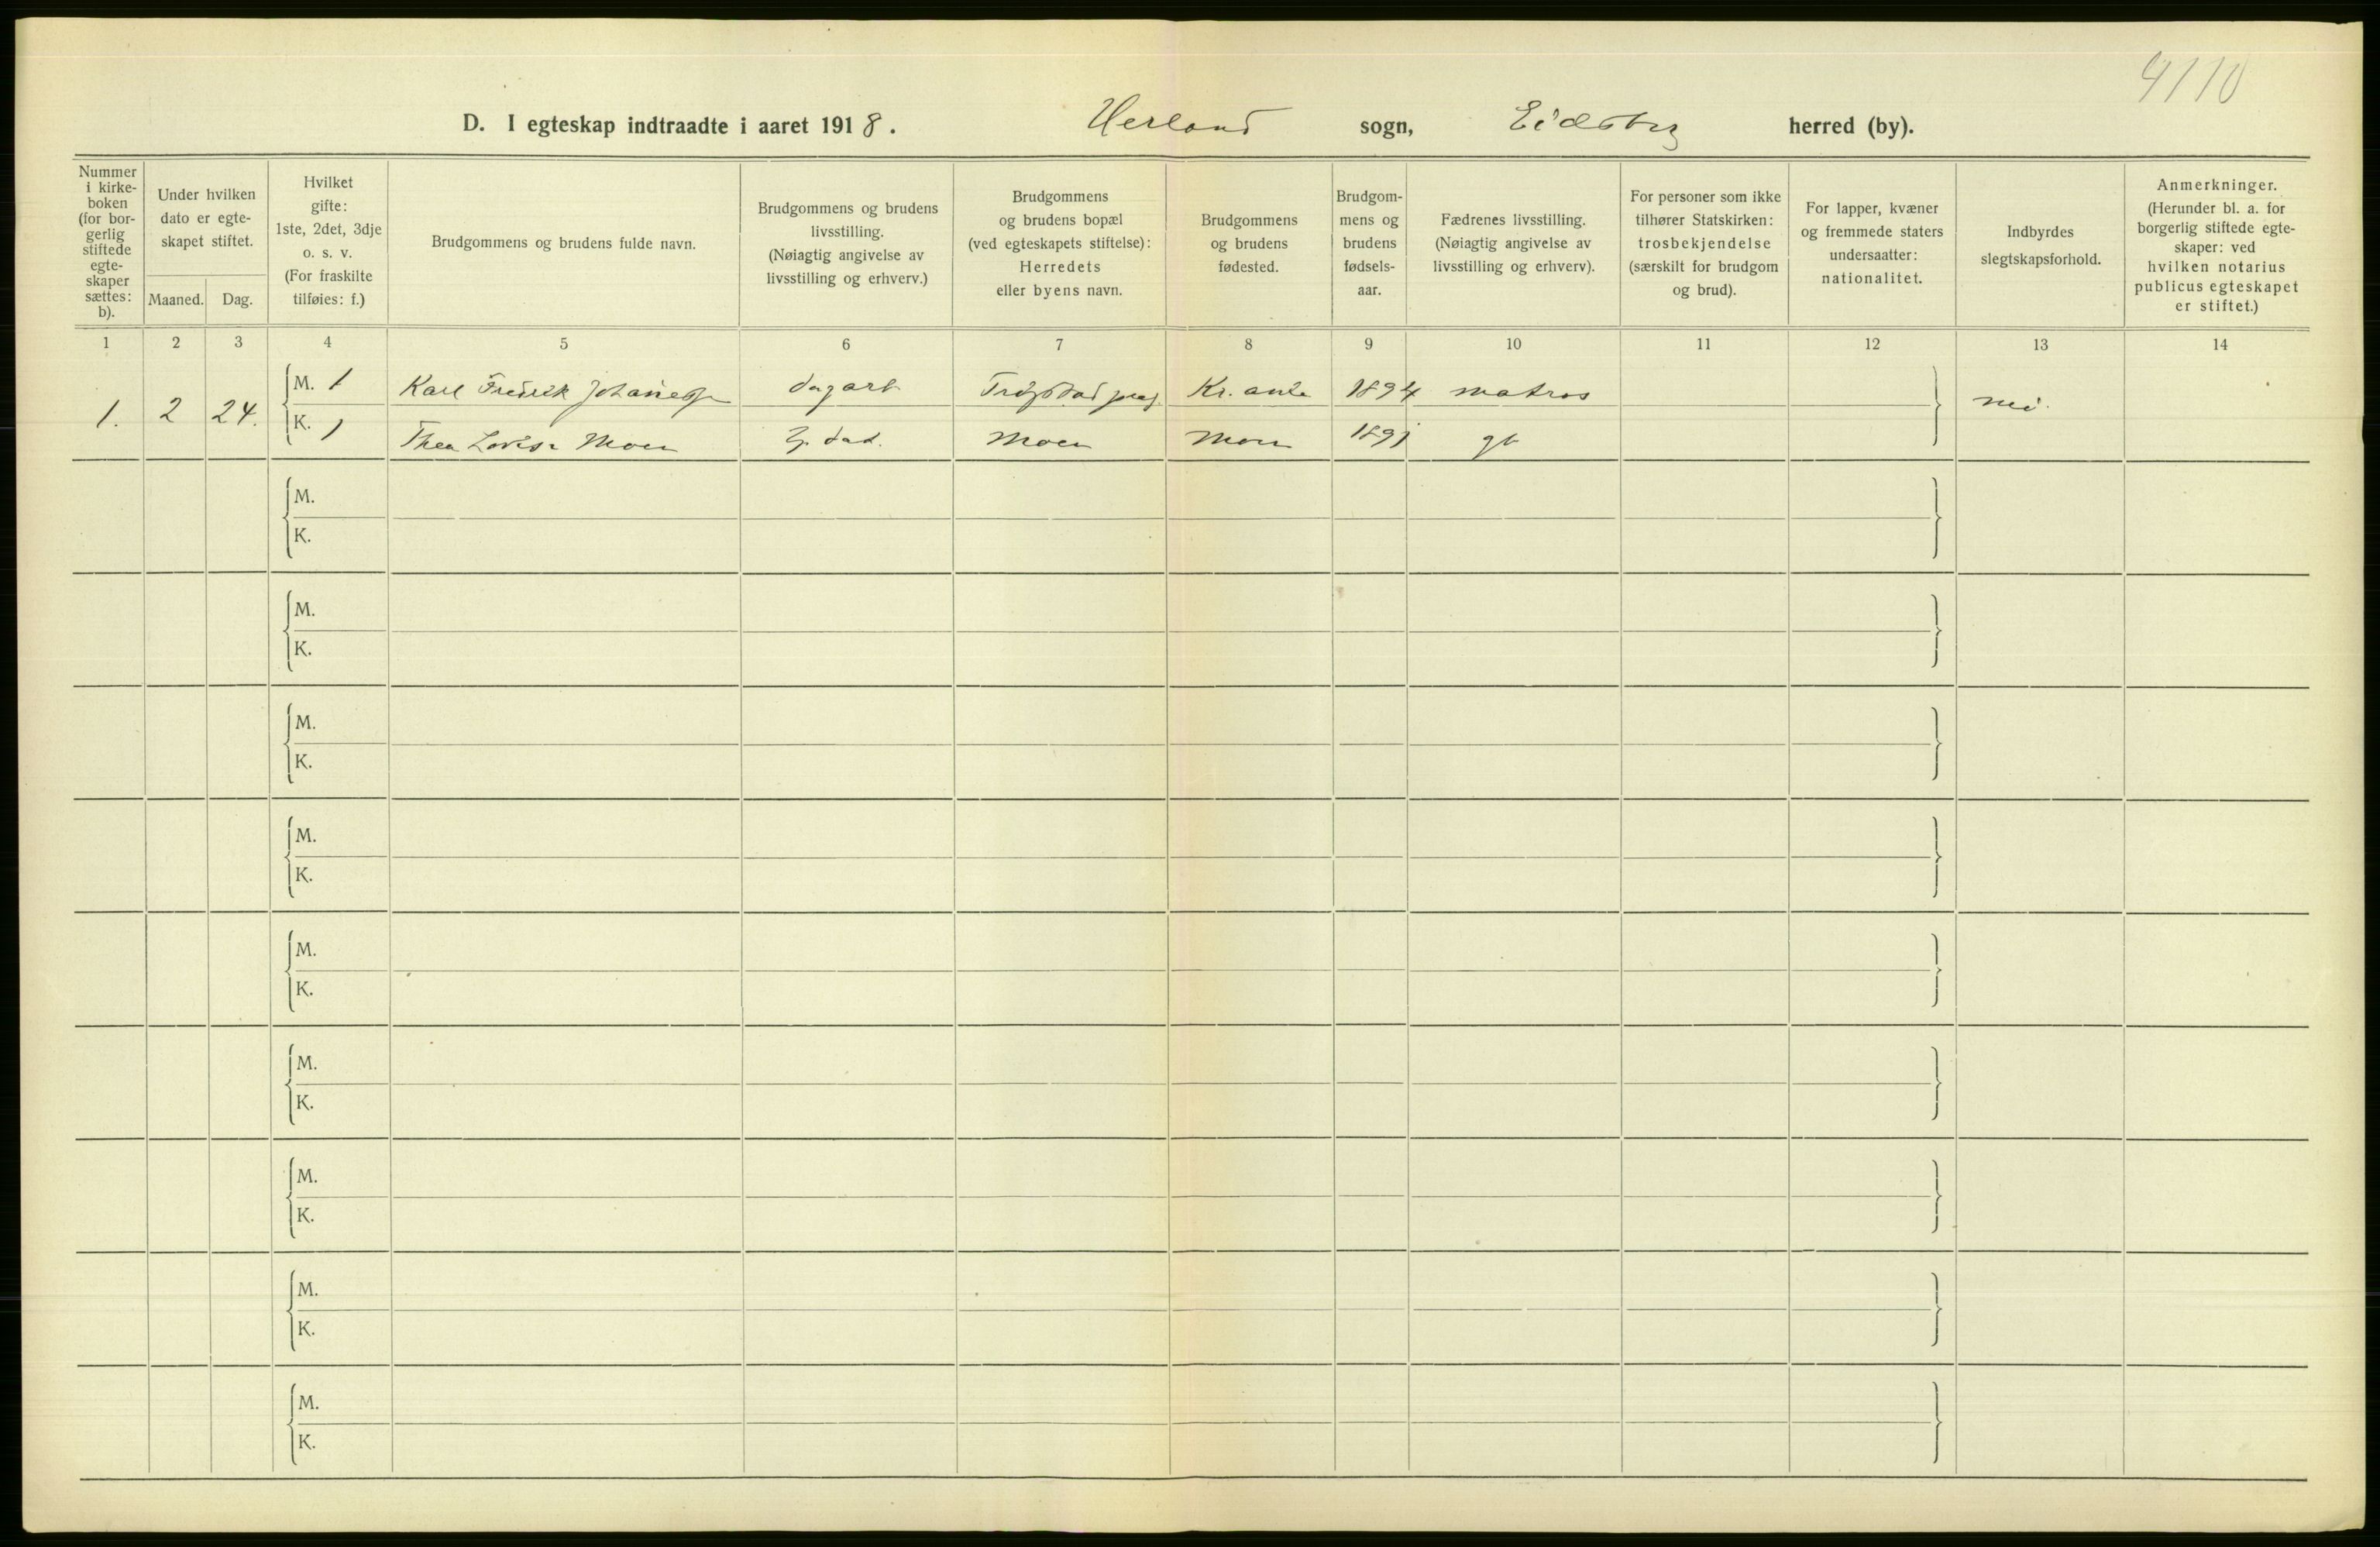 4110
D. I egteskap indtraadte i aaret 1918. Herland sogn, Eidsberg herred (by).
Nummer
i kirke-
boken
(for bor-
gerlig
stiftede
egte-
skaper
sættes:
b).
Under hvilken
dato er egte-
skapet stiftet.
Maaned. Dag.
Hvilket
gifte:
1ste, 2det, 3dje
o. s. v.
(For fraskilte
tilføies: f.)
Brudgommens og brudens fulde navn.
Brudgommens og brudens
livsstilling.
(Nøiagtig angivelse av
livsstilling og erhverv.)
Brudgommens
og brudens bopæl
(ved egteskapets stiftelse):
Herredets
eller byens navn.
Brudgommens
og brudens
fødested.
Brudgom-
mens og
brudens
fødsels-
aar.
Fædrenes livsstilling.
(Nøiagtig angivelse av
livsstilling og erhverv).
For personer som ikke
tilhører Statskirken:
trosbekjendelse
(særskilt for brudgom
og brud).
For lapper, kvæner
og fremmede staters
undersaatter:
nationalitet.
Indbyrdes
slegtskapsforhold.
Anmerkninger.
(Herunder bl. a. for
borgerlig stiftede egte-
skaper: ved
hvilken notarius
publicus egteskapet
er stiftet.)
1 2 3 4 5 6 7 8 9 10 11 12 13 14
1. 2 24. M. 1 Karl Fredrik Johanessen dagarb Trøgstad Kr. ania 1894 matros nei.
K. 1 Thea Lovise Moen Moen Moen 1891 gb
M.
K.
M.
K.
M.
K.
M.
K.
M.
K.
M.
K.
M.
K.
M.
K.
M.
K.